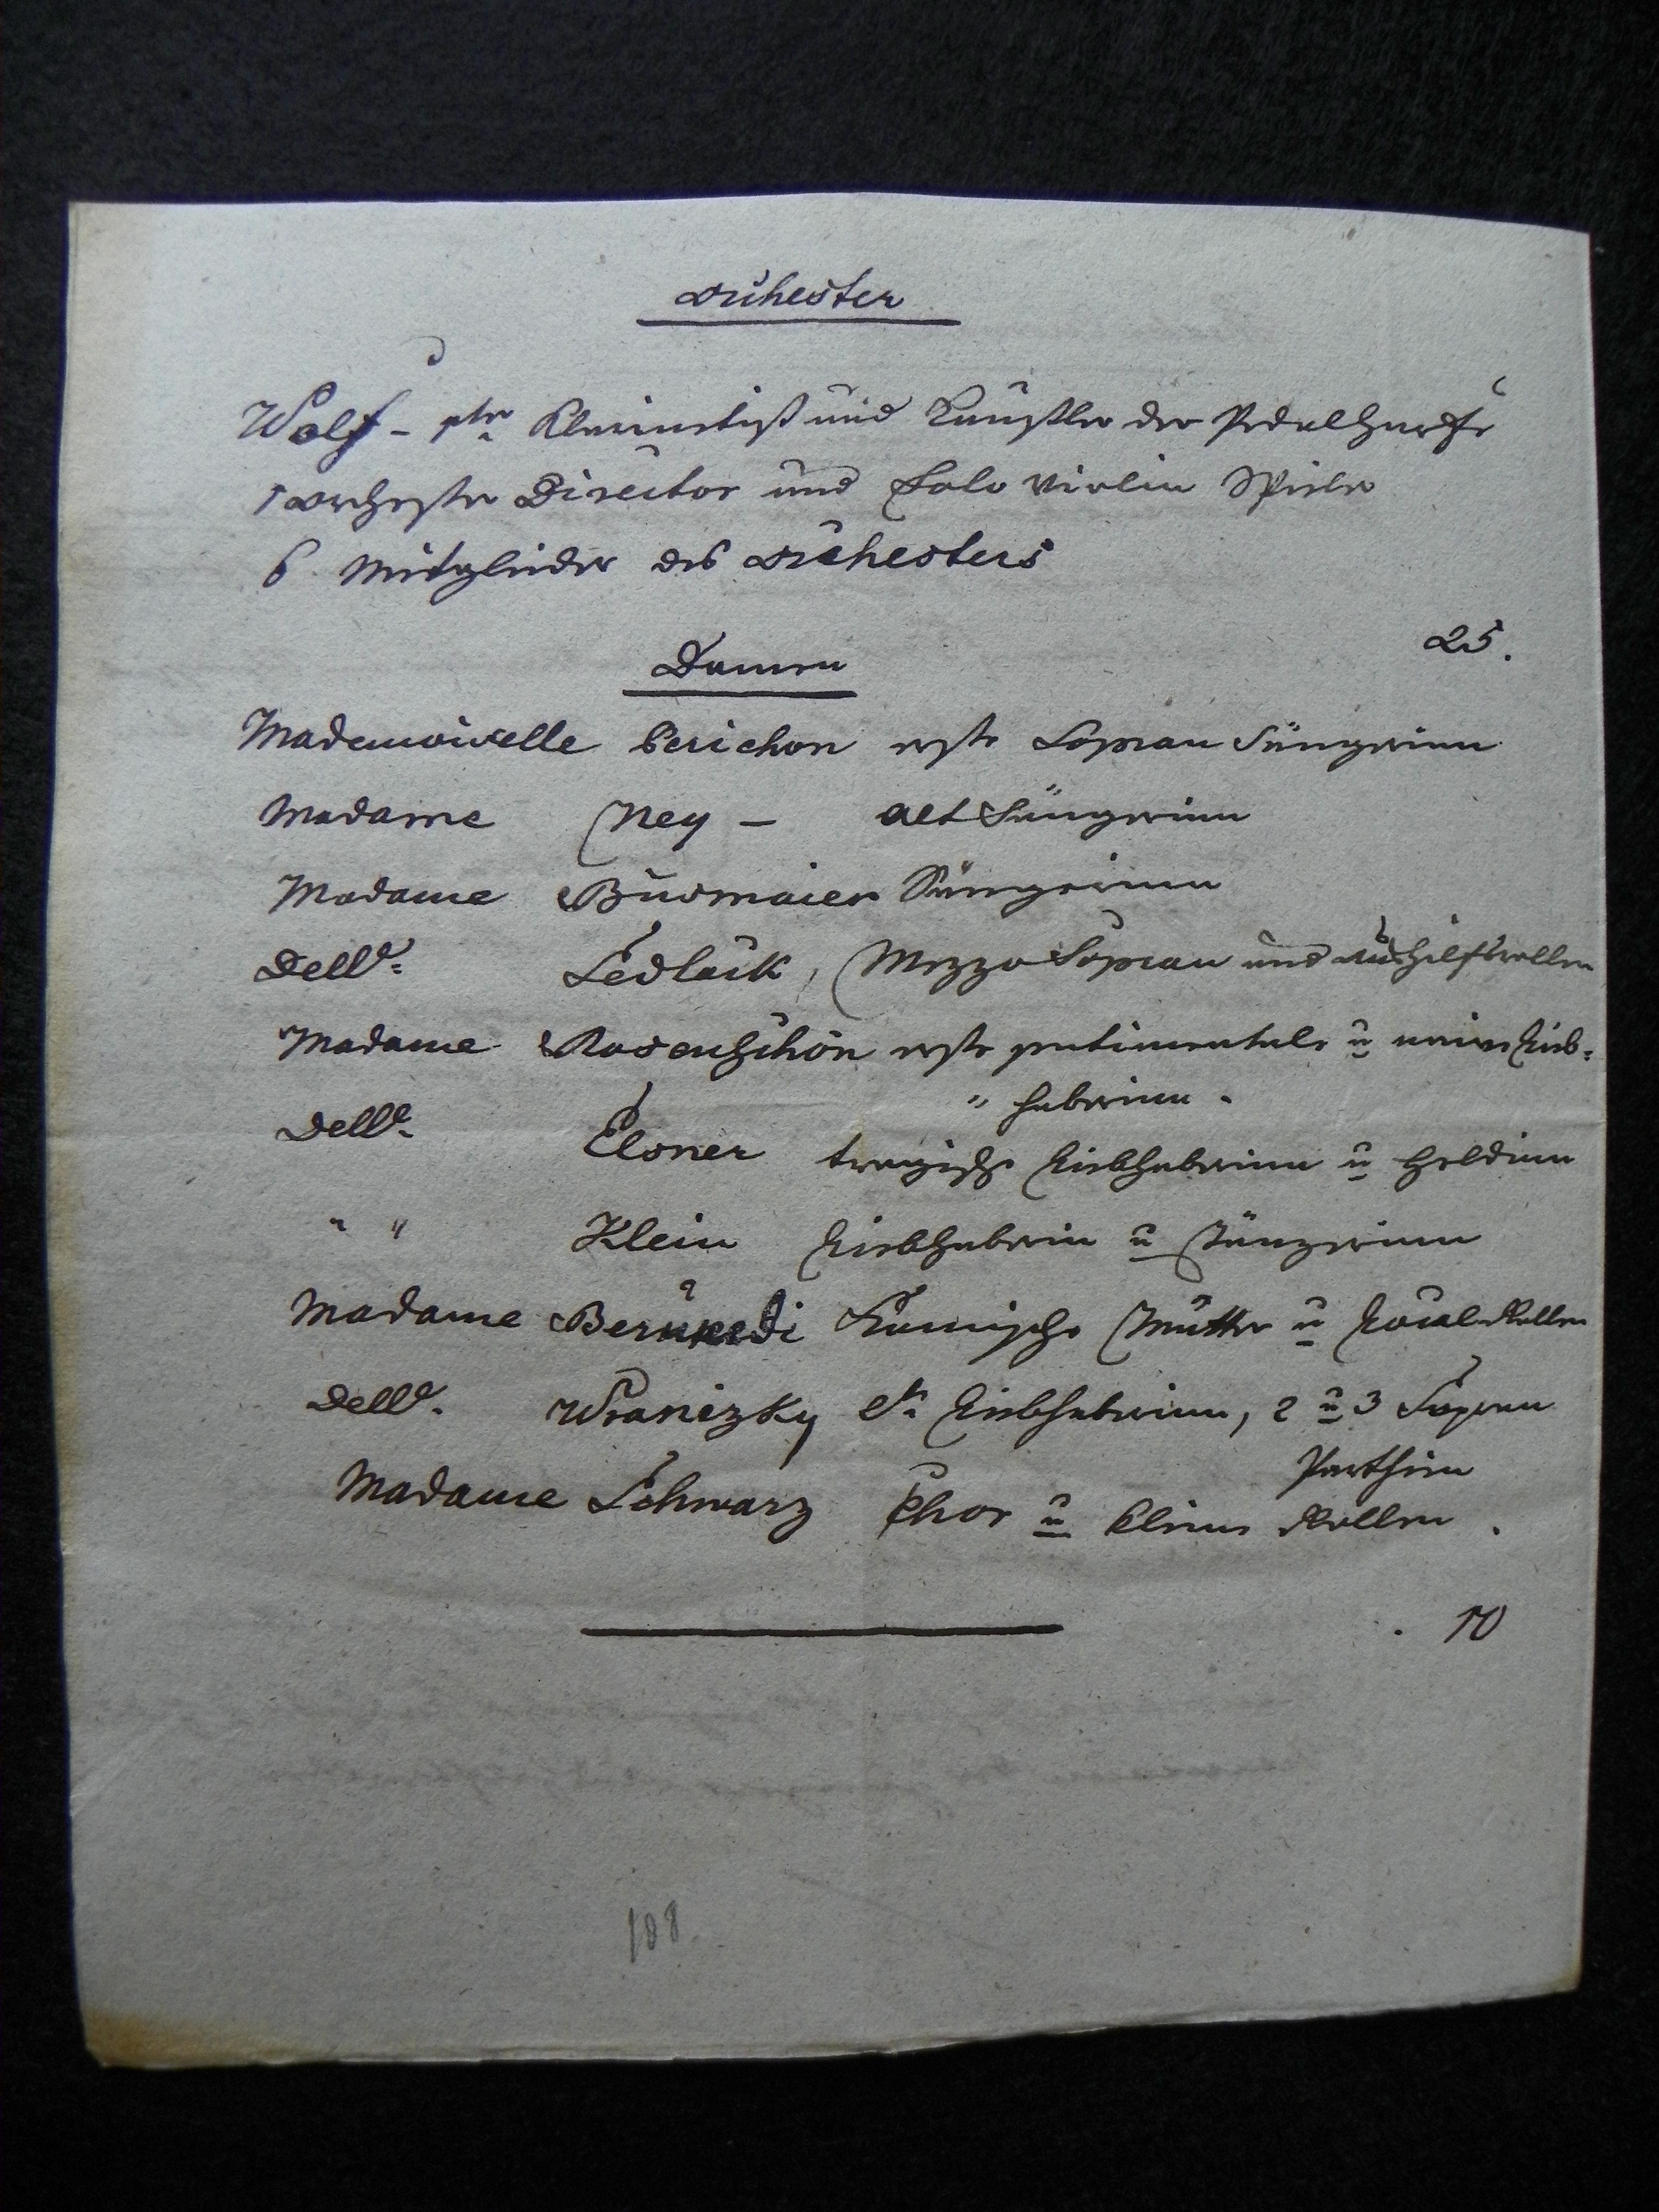 Orchester
Wolf - Klarinetist und Künstler der Pedalharfe
1 Orchester Director und Solo Violin Spieler
6 Mitglieder des Orchesters
25.
Damen
Mademoiselle Perichon erste Sopran Sängerinn
Madame Ney - Alt Sängerinn
Madame Busmaier Sängerinn
Delle. Sedlack, Mezzo Sopran und Aushilfsrollen
Madame Rosenschön erste sentimentale u naive Lieb=
" haberinn.
Delle. Elsner tragische Liebhaberinn u Heldinn
" " Klein Liebhaberin u Tänzerinn
Madame Komische Mutter u Local Rollen
Delle. Wranizky 2te Liebhaberinn, 2 u 3 Sopran
Parthien
Madame Schwarz Chor u kleine Rollen.
10
188